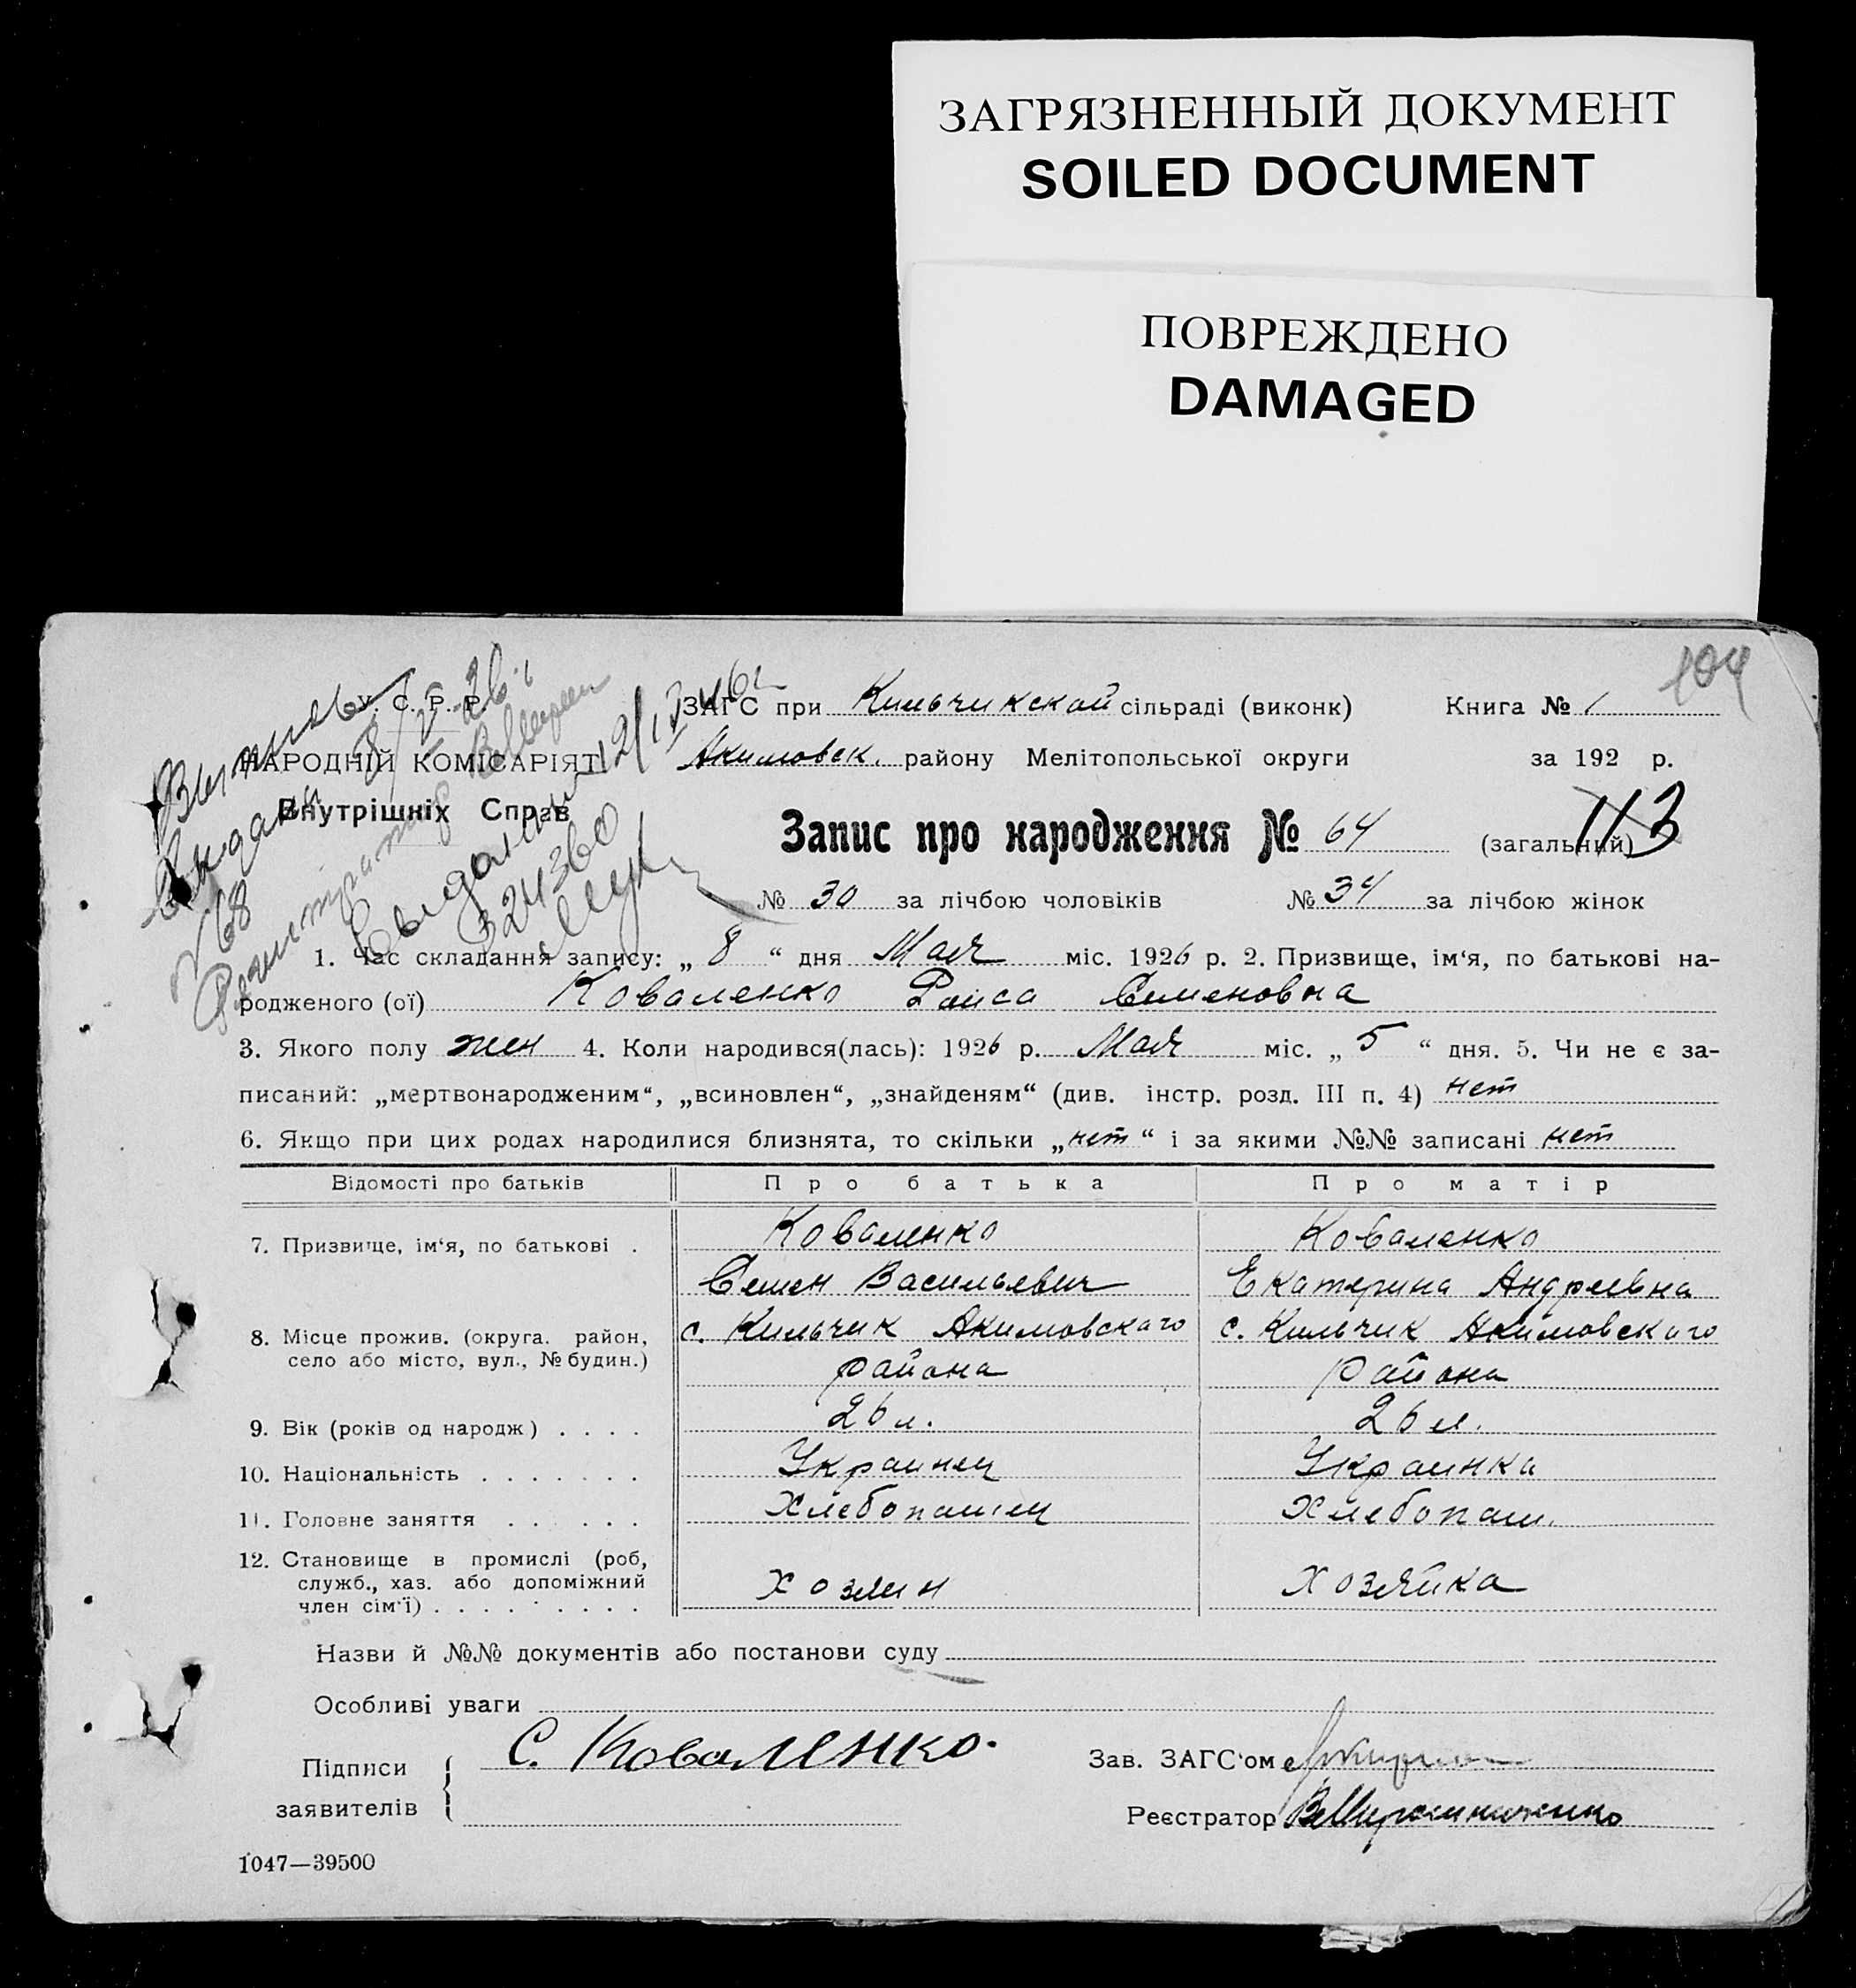 ЗАГРЯЗНЕННЫЙ ДОКУМЕНТ
SOILED DOCUMENT
ПОВРЕЖДЕНО
DAMAGED
104
У. С. Р. Р.
НАРОДНІЙ КОМІСАРІЯТ
Внутрішніх Справ
№ 68
ЗАГС при Кильчикской сільраді (виконк) Книга № 1
Акимовск. району Мелітопольської округи за 192 р.
Запис про народження № 64 (загальний) 113
№ 30 за лічбою чоловіків № 34 за лічбою жінок
1. Час складання запису: „ 8 “ дня Мая міс. 1926 р. 2. Призвище, ім‘я, по батькові на-
родженого (ої) Коваленко Раиса Семеновна
3. Якого полу жен 4. Коли народився(лась): 1926 р. Мая міс. „ 5 “ дня. 5. Чи не є за-
писаний: „мертвонародженим“, „всиновлен“, „знайденям“ (див. інстр. розд. III п. 4) нет
6. Якщо при цих родах народилися близнята, то скільки „нет“ і за якими №№ записані нет
Відомості про батьків Про батька Про матір
7. Призвище, ім‘я, по батькові . Коваленко Коваленко
Семен Васильевич Екатерина Андреевна
8. Місце прожив. (округа. район, с. Кильчик Акимовского с. Кильчик Акимовского
село або місто, вул., № будин.) района района
9. Вік (років од народж) . . . . 26 л. 26 л.
10. Національність . . . . . . . Украинец Украинка
11. Головне заняття . . . . . . Хлебопашец Хлебопаш.
12. Становище в промислі (роб,
служб., хаз. або допоміжний Хозяин Хозяйка
член сім‘ї) . . . . . . . . .
Назви й №№ документів або постанови суду
Особливі уваги
Підписи С. Коваленко. Зав. ЗАГС‘ом
заявителів Реєстратор
1047—39500